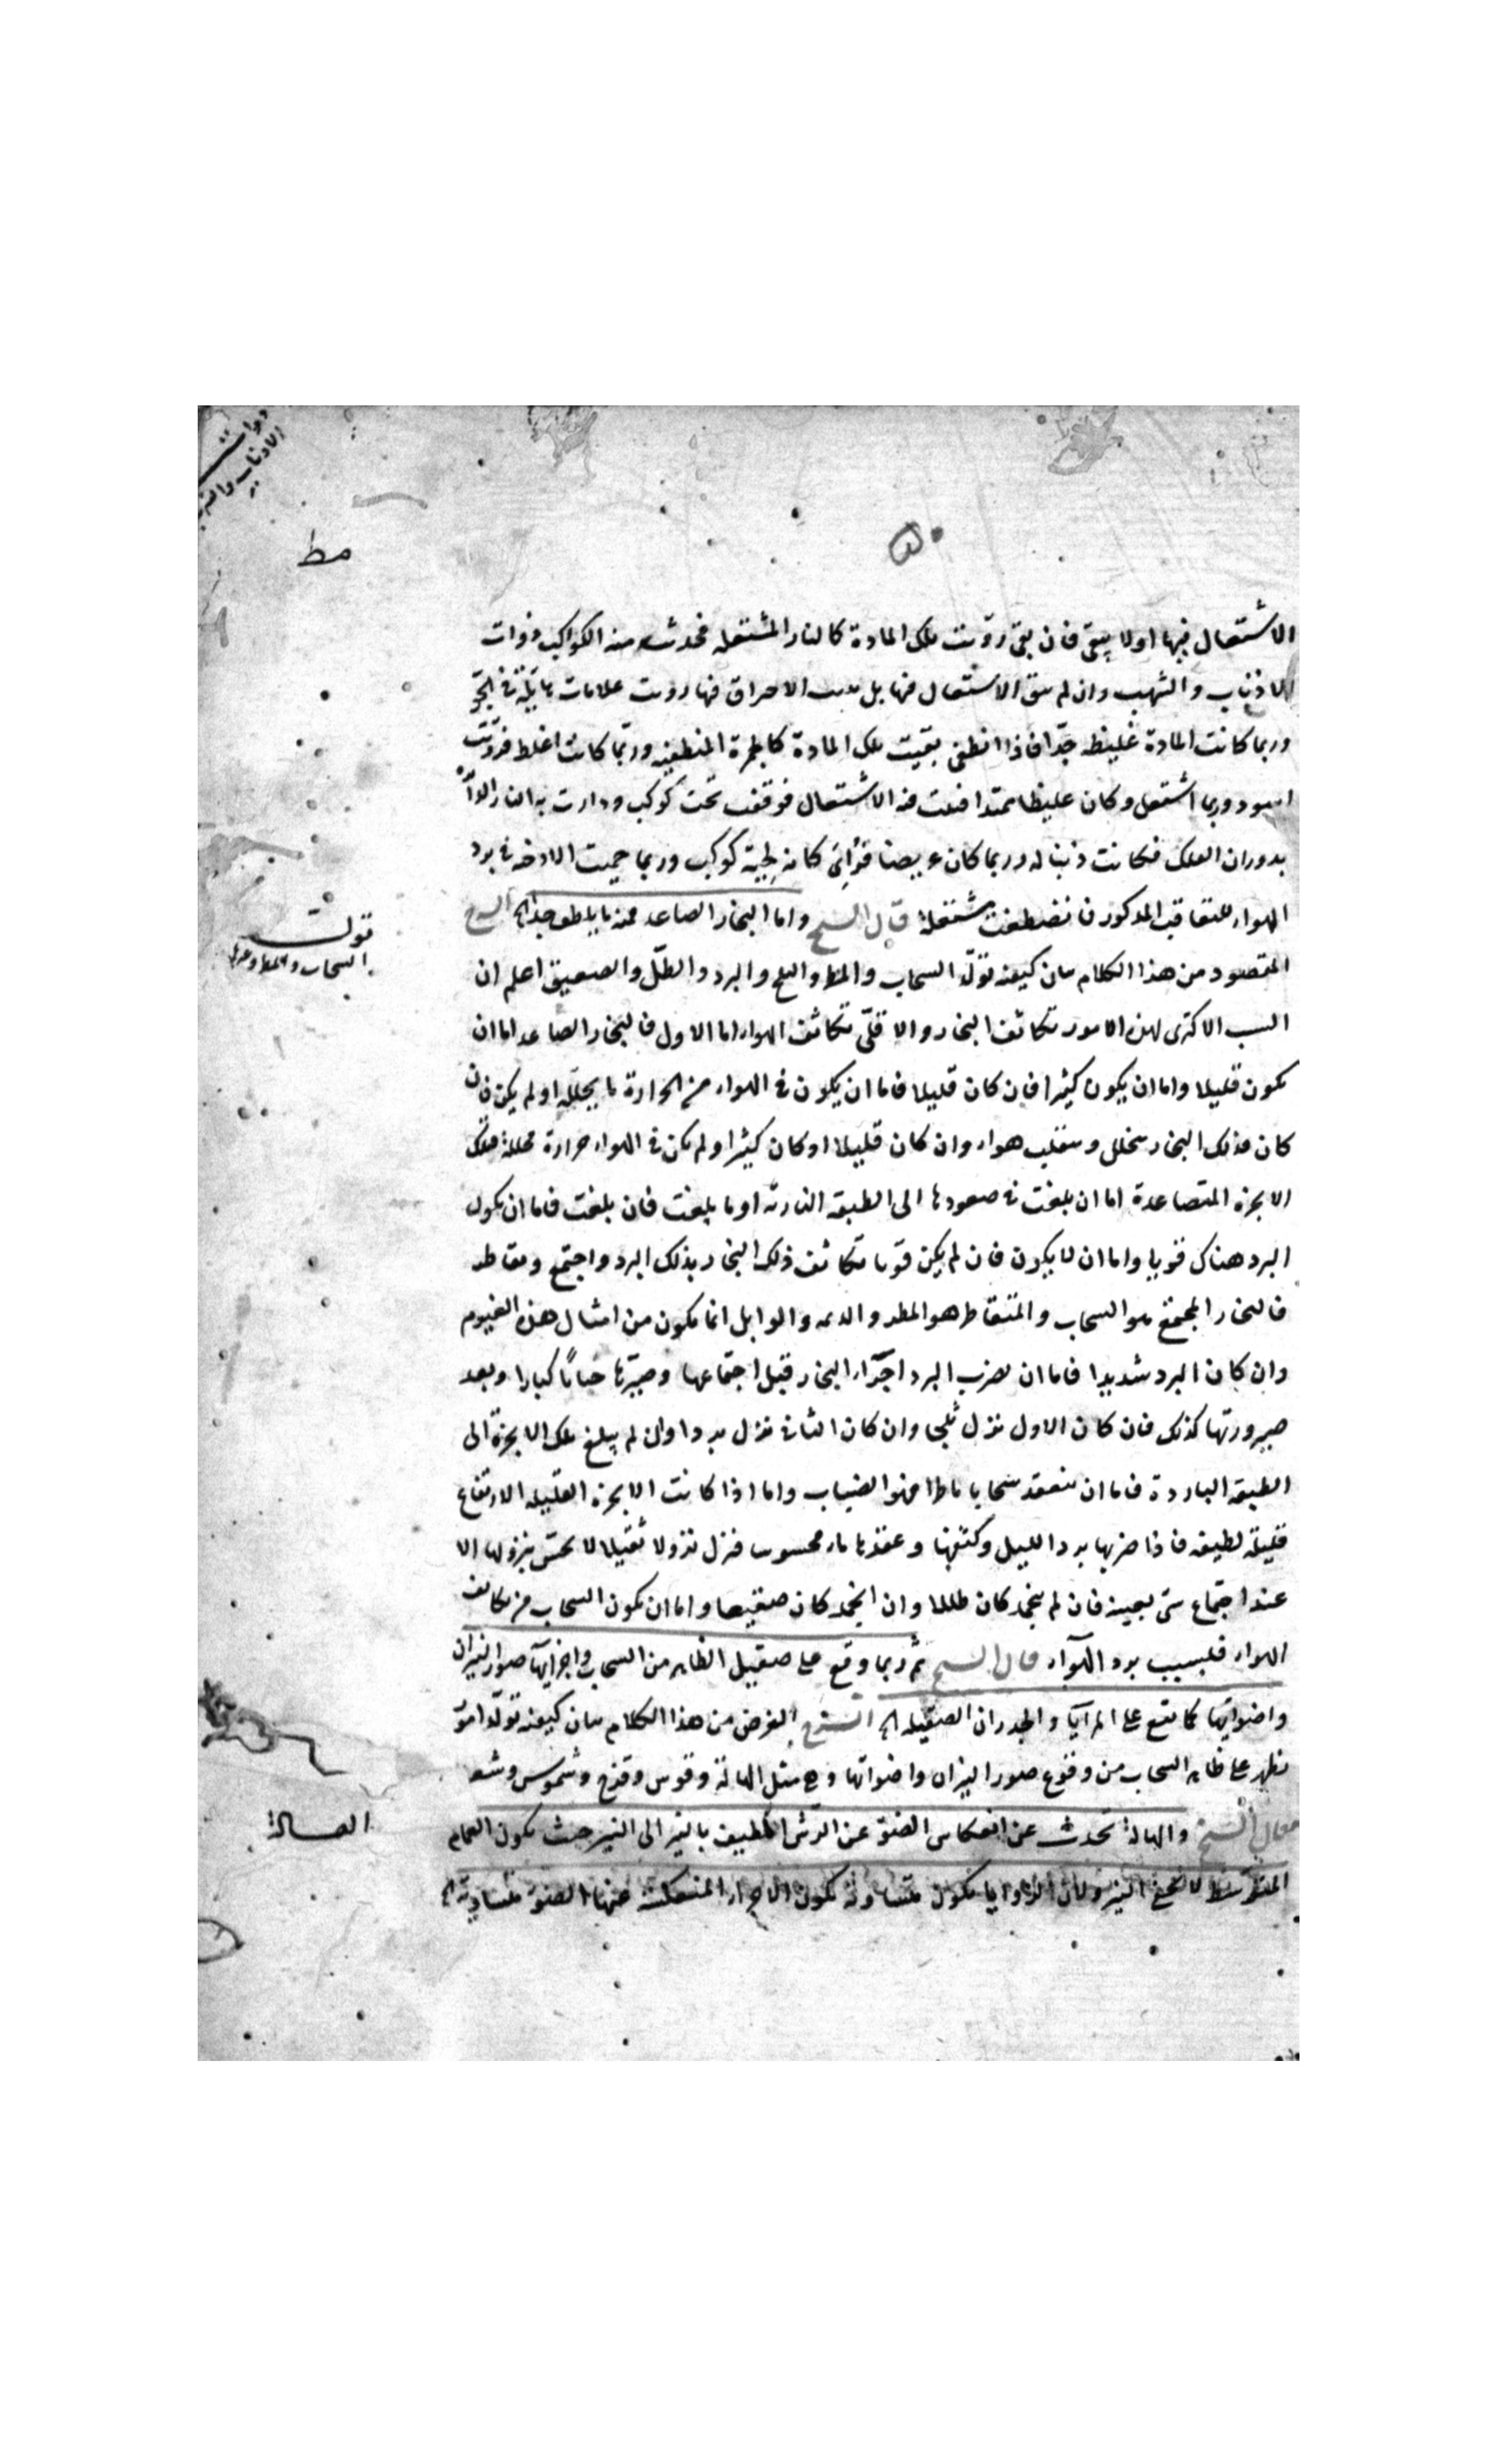 ذوات
الاذناب والشهب
مط
٥٠
الاشتعال فيها اولا يبقى فان بقى روّيت تلك المادة كالنار المشتعله فحدث منه الكواكب ذوات
الاذناب والشهب وان لم يبق الاشتعال فيها بل يثبت الاحراق فيها رويت علامات هايلة في الجو
وربما كانت المادة غليظه جدّا فاذا انطفى بقيت تلك المادة كالجمرة المنطفيه وربّما كانت اغلظ فرؤيت
اسود وربما اشتعل وكان غليظا ممتدا فثبت فيه الاشتعال فوقف تحت كوكب ودارت به النار الدائرة
بدوران الفلك فكانت ذنبا له وربما كان عريضا فرُأى كانه لحية كوكب وربما حميت الادخنه في برد
الهواء للتعاقب المذكور فانضغطت مشتعلة قال الشيخ واما البخار الصاعد فمنه ما يلطف جدا الخ الشرح
المقصود من هذا الكلام بيان كيفيه تولّد السحاب والمطر والثلج والبرد والطلّ والصقيع اعلم ان
السبب الاكثرى لهذه الامور تكاثف البخار والاقلّى تكاثف الهواء اما الاول فالبخار الصاعد اما ان
يكون قليلا واما ان يكون كثيرا فان كان قليلا فاما ان يكون في الهواء من الحرارة ما يحلله او لم يكن فان
كان فذلك البخار يتحلل وينقلب هواء وان كان قليلا او كان كثيرا ولم يكن في الهواء حرارة محللة فتلك
الابخرة المتصاعدة اما ان بلغت في صعودها الى الطبقه الباردة او ما بلغت فان بلغت فاما ان يكون
البرد هناك قويا واما ان لا يكون فان لم يكن قويا تكاثف ذلك البخار بذلك البرد واجتمع وتقاطر
فالبخار المجتمع هو السحاب والمتقاطر هو المطر والديمه والوابل انما يكون من امثال هذه الغيوم
وان كان البرد شديدا فاما ان يضرب البرد اجزاء البخار قبل اجتماعها وصيّرها حبابًا كبارا وبعد
صيرورتها كذلك فان كان الاول نزل ثلجا وان كان الثاني نزل بردا وان لم يبلغ تلك الابخرة الى
الطبقه الباردة فاما ان ينعقد سحابا ماطرا فهو الضباب واما اذا كانت الابخرة القليله الارتفاع
قليلة لطيفه فاذا ضربها برد الليل وكثفها وعقدها ماء محسوسا فنزل نزولا ثقيلا لا يحسّ بنزولها الا
عند اجتماع شئ بعينه فان لم يتجمد كان طللا وان انجمد كان صقيعا واما ان يكون السحاب من تكاثف
الهواء فلسبب برد الهواء قال الشيخ ثم ربما وقع على صقيل الظاهر من السحاب واجزايها صور النيران
واضوايها كما تقع على المرآيا والجدران الصقيله الخ الشرح الغرض من هذا الكلام بيان كيفيه تولّد امور
تظهر على ظاهر السحاب من وقوع صور النيران واضوائها وهي مثل الهالة وقوس وقزح وشموس وشهب
فقال الشيخ والهالة تحدث عن انعكاس الضوء عن الرّش المطيف بالنير الى النير حيث يكون الغمام
المتوسط لا يخفى النير ولان الزوايا يكون متساوية يكون الاجزاء المنعكسة عنها الضوء متساوية الخ
تولد
السحاب والمطر وغيرها
الهالة